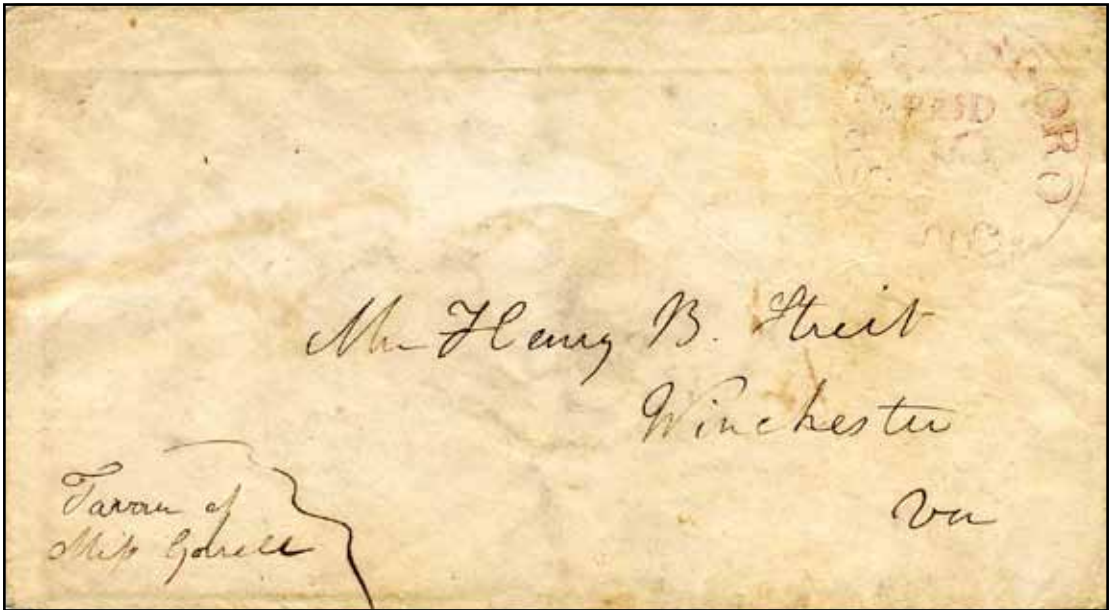 ORO
Mr Henry B. Streit
Winchester
Va
Favour of
Miss Gorrell